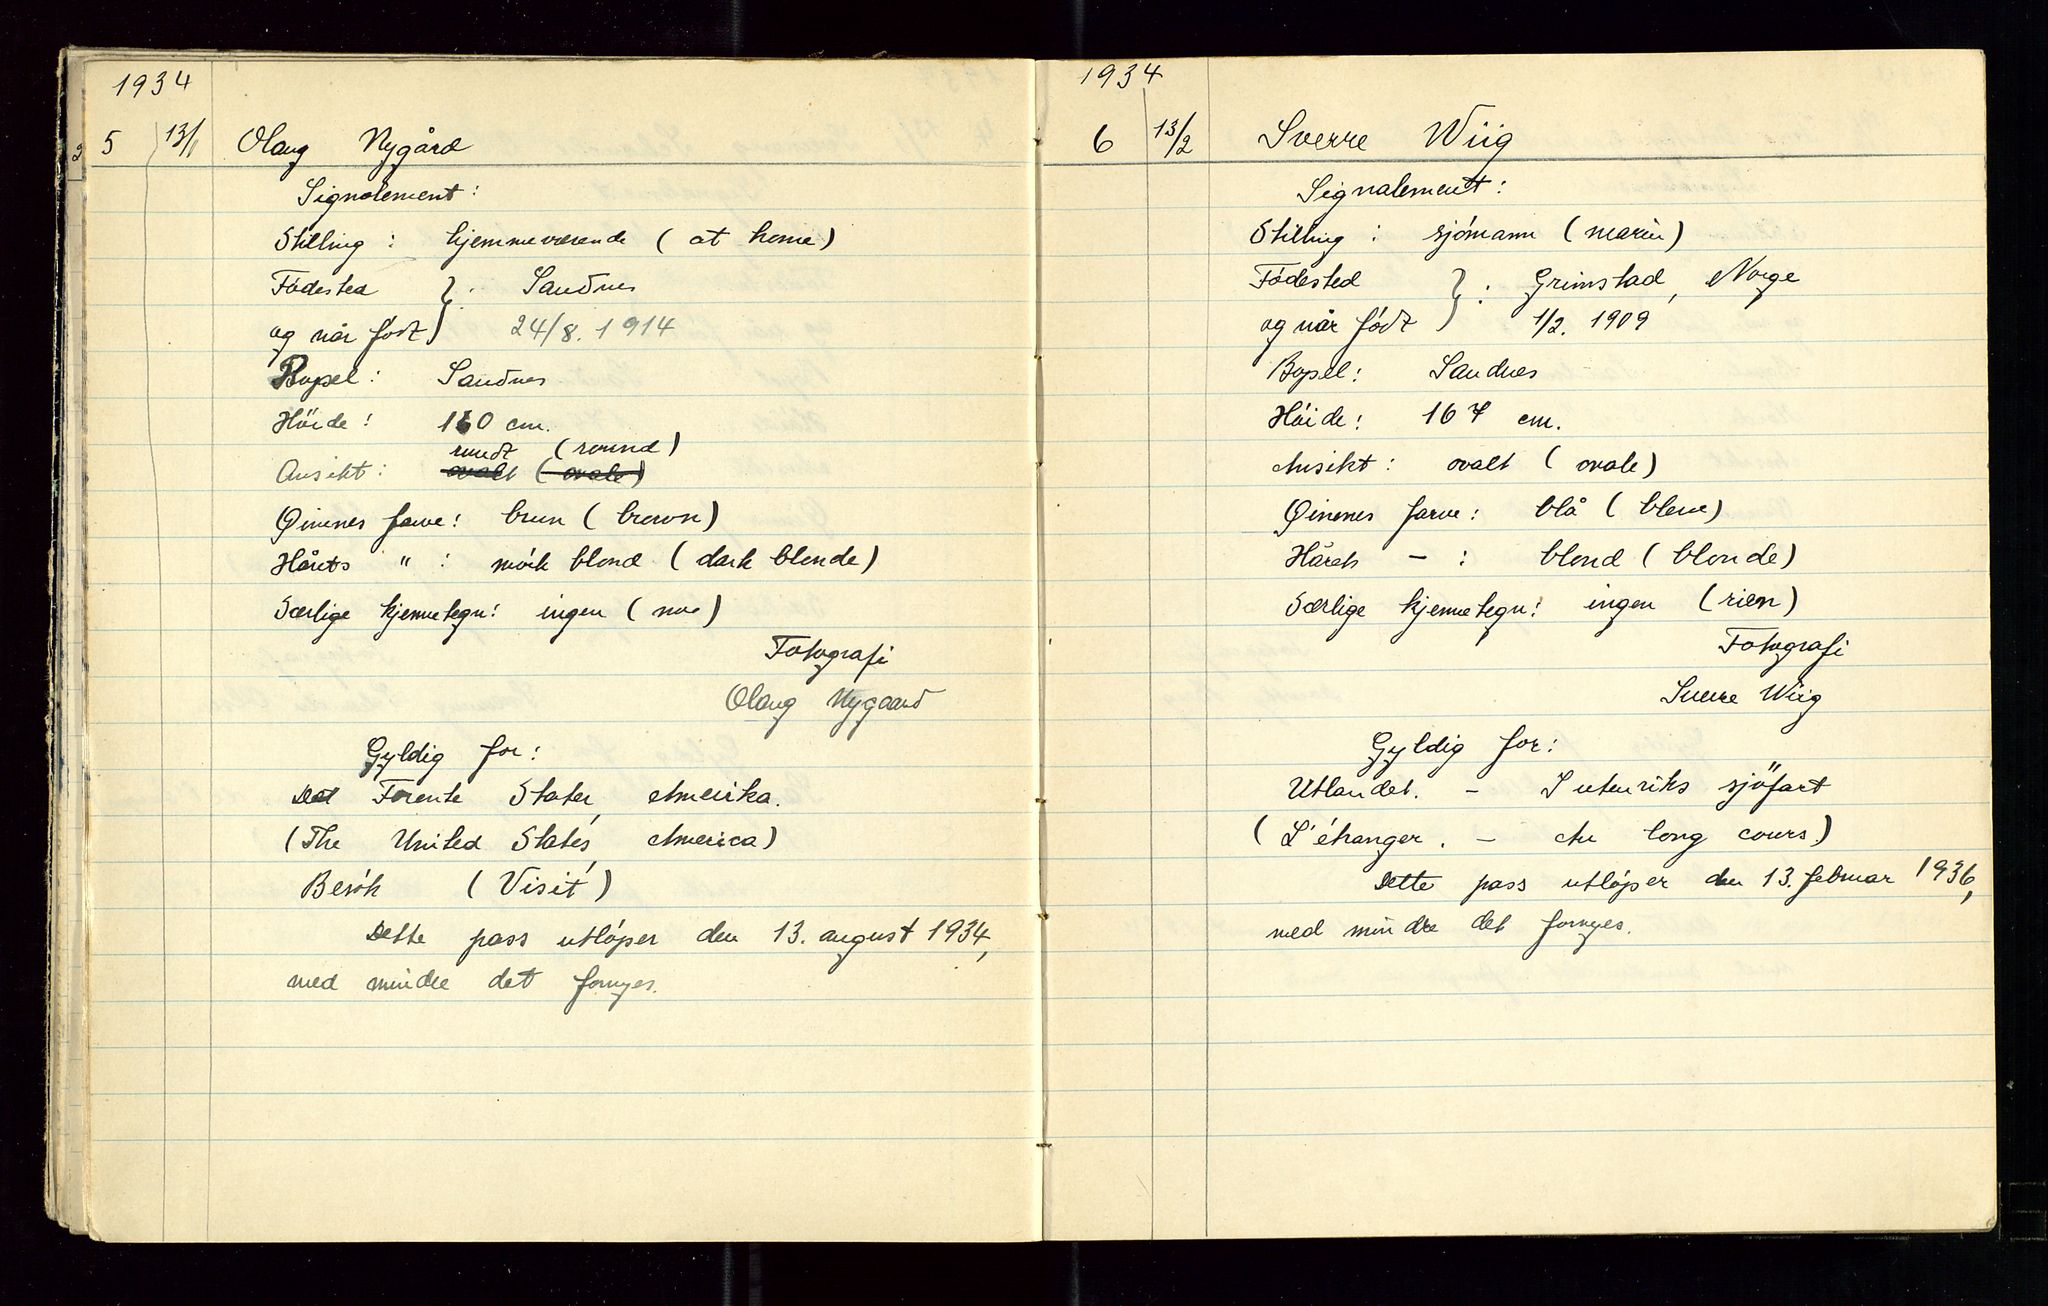 1934
5 13/1 Olaug Nygård
Signalement:
Stilling: hjemmeværende (at home)
Fødested } : Sandnes
og når født } 24/8. 1914
Bopel: Sandnes
Höide: 160 cm.
rundt (round)
Ansikt: ovalt (ovale)
Øinenes farve: brun (brown)
Hårets " : mörk blond (dark blonde)
Særlige kjennetegn: ingen (no)
Fotografi
Olaug Nygaard
Gyldig for:
Det Forente Stater, Amerika.
(The United States, America)
Besök (Visit)
Dette pass utløper den 13. august 1934,
med mindre det fornyes.
1934
6 13/2 Sverre Wiig
Signalement:
Stilling: sjömann (marin)
Födested } : Grimstad, Norge
og når födt } 1/2. 1909
Bopel: Sandnes
Höide: 167 cm.
Ansikt: ovalt (ovale)
Øinenes farve: blå (bleue)
Hårets - : blond (blonde)
Særlige kjennetegn: ingen (rien)
Fotografi
Sverre Wiig
Gyldig for:
Utlandet. - I utenriks sjöfart
(L'étranger. - Au long cours.)
Dette pass utlöper den 13. februar 1936,
med mindre det fornyes.